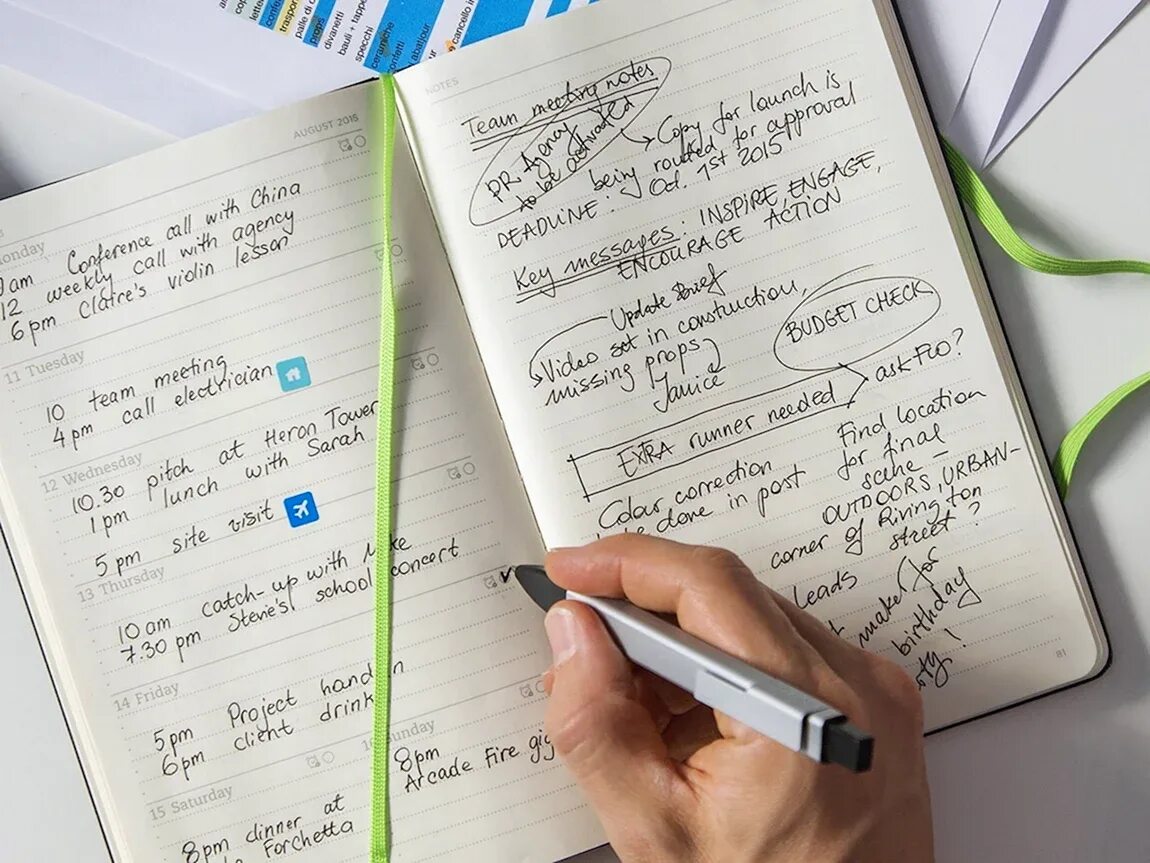 lettere
trasporto
props
palle di
divanetti
bauli + tappe
specchi
ceramiche
confetti
abatjour
cancello in
AUGUST 2015
onday
am Conference call with China
12 weekly call with agency
6 pm Claire's violin lesson
11 Tuesday
10 team meeting
4 pm call electrician
12 Wednesday
10.30 pitch at Heron Tower
1 pm lunch with Sarah
5 pm site visit
13 Thursday
10 am catch-up with
7.30 pm Stevie's school concert
14 Friday
5 pm Project hand in
6 pm client drink
15 Saturday
8 pm dinner at
Forchetta
Sunday
8 pm
Arcade Fire gig
NOTES
Team meeting notes
PR Agency
to be activated
Copy for launch is
being routed for approval
DEADLINE: Oct. 1st 2015
Key messages: INSPIRE, ENGAGE,
ENCOURAGE ACTION
Update Brief
Video set in construction,
missing props
Janice
BUDGET CHECK
EXTRA runner needed
ask Foo?
Colour correction
be done in post
Find location
for final
scene –
OUTDOORS, URBAN–
corner of Rivington
street?
Leads
make for
birthday
81